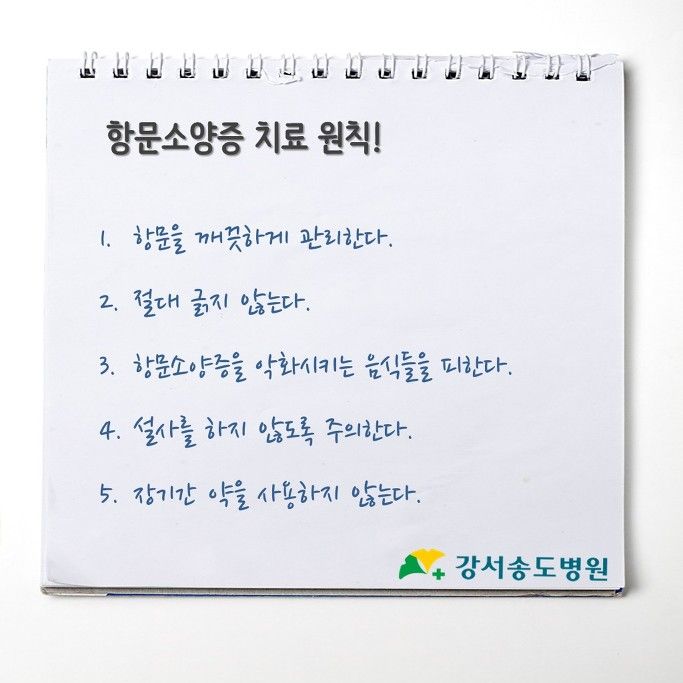 항문소양증 치료 원칙!
1. 항문을 깨끗하게 관리한다.
2. 절대 긁지 않는다.
3. 항문소양증을 악화시키는 음식들을 피한다.
4. 설사를 하지 않도록 주의한다.
5. 장기간 약을 사용하지 않는다.
강서송도병원